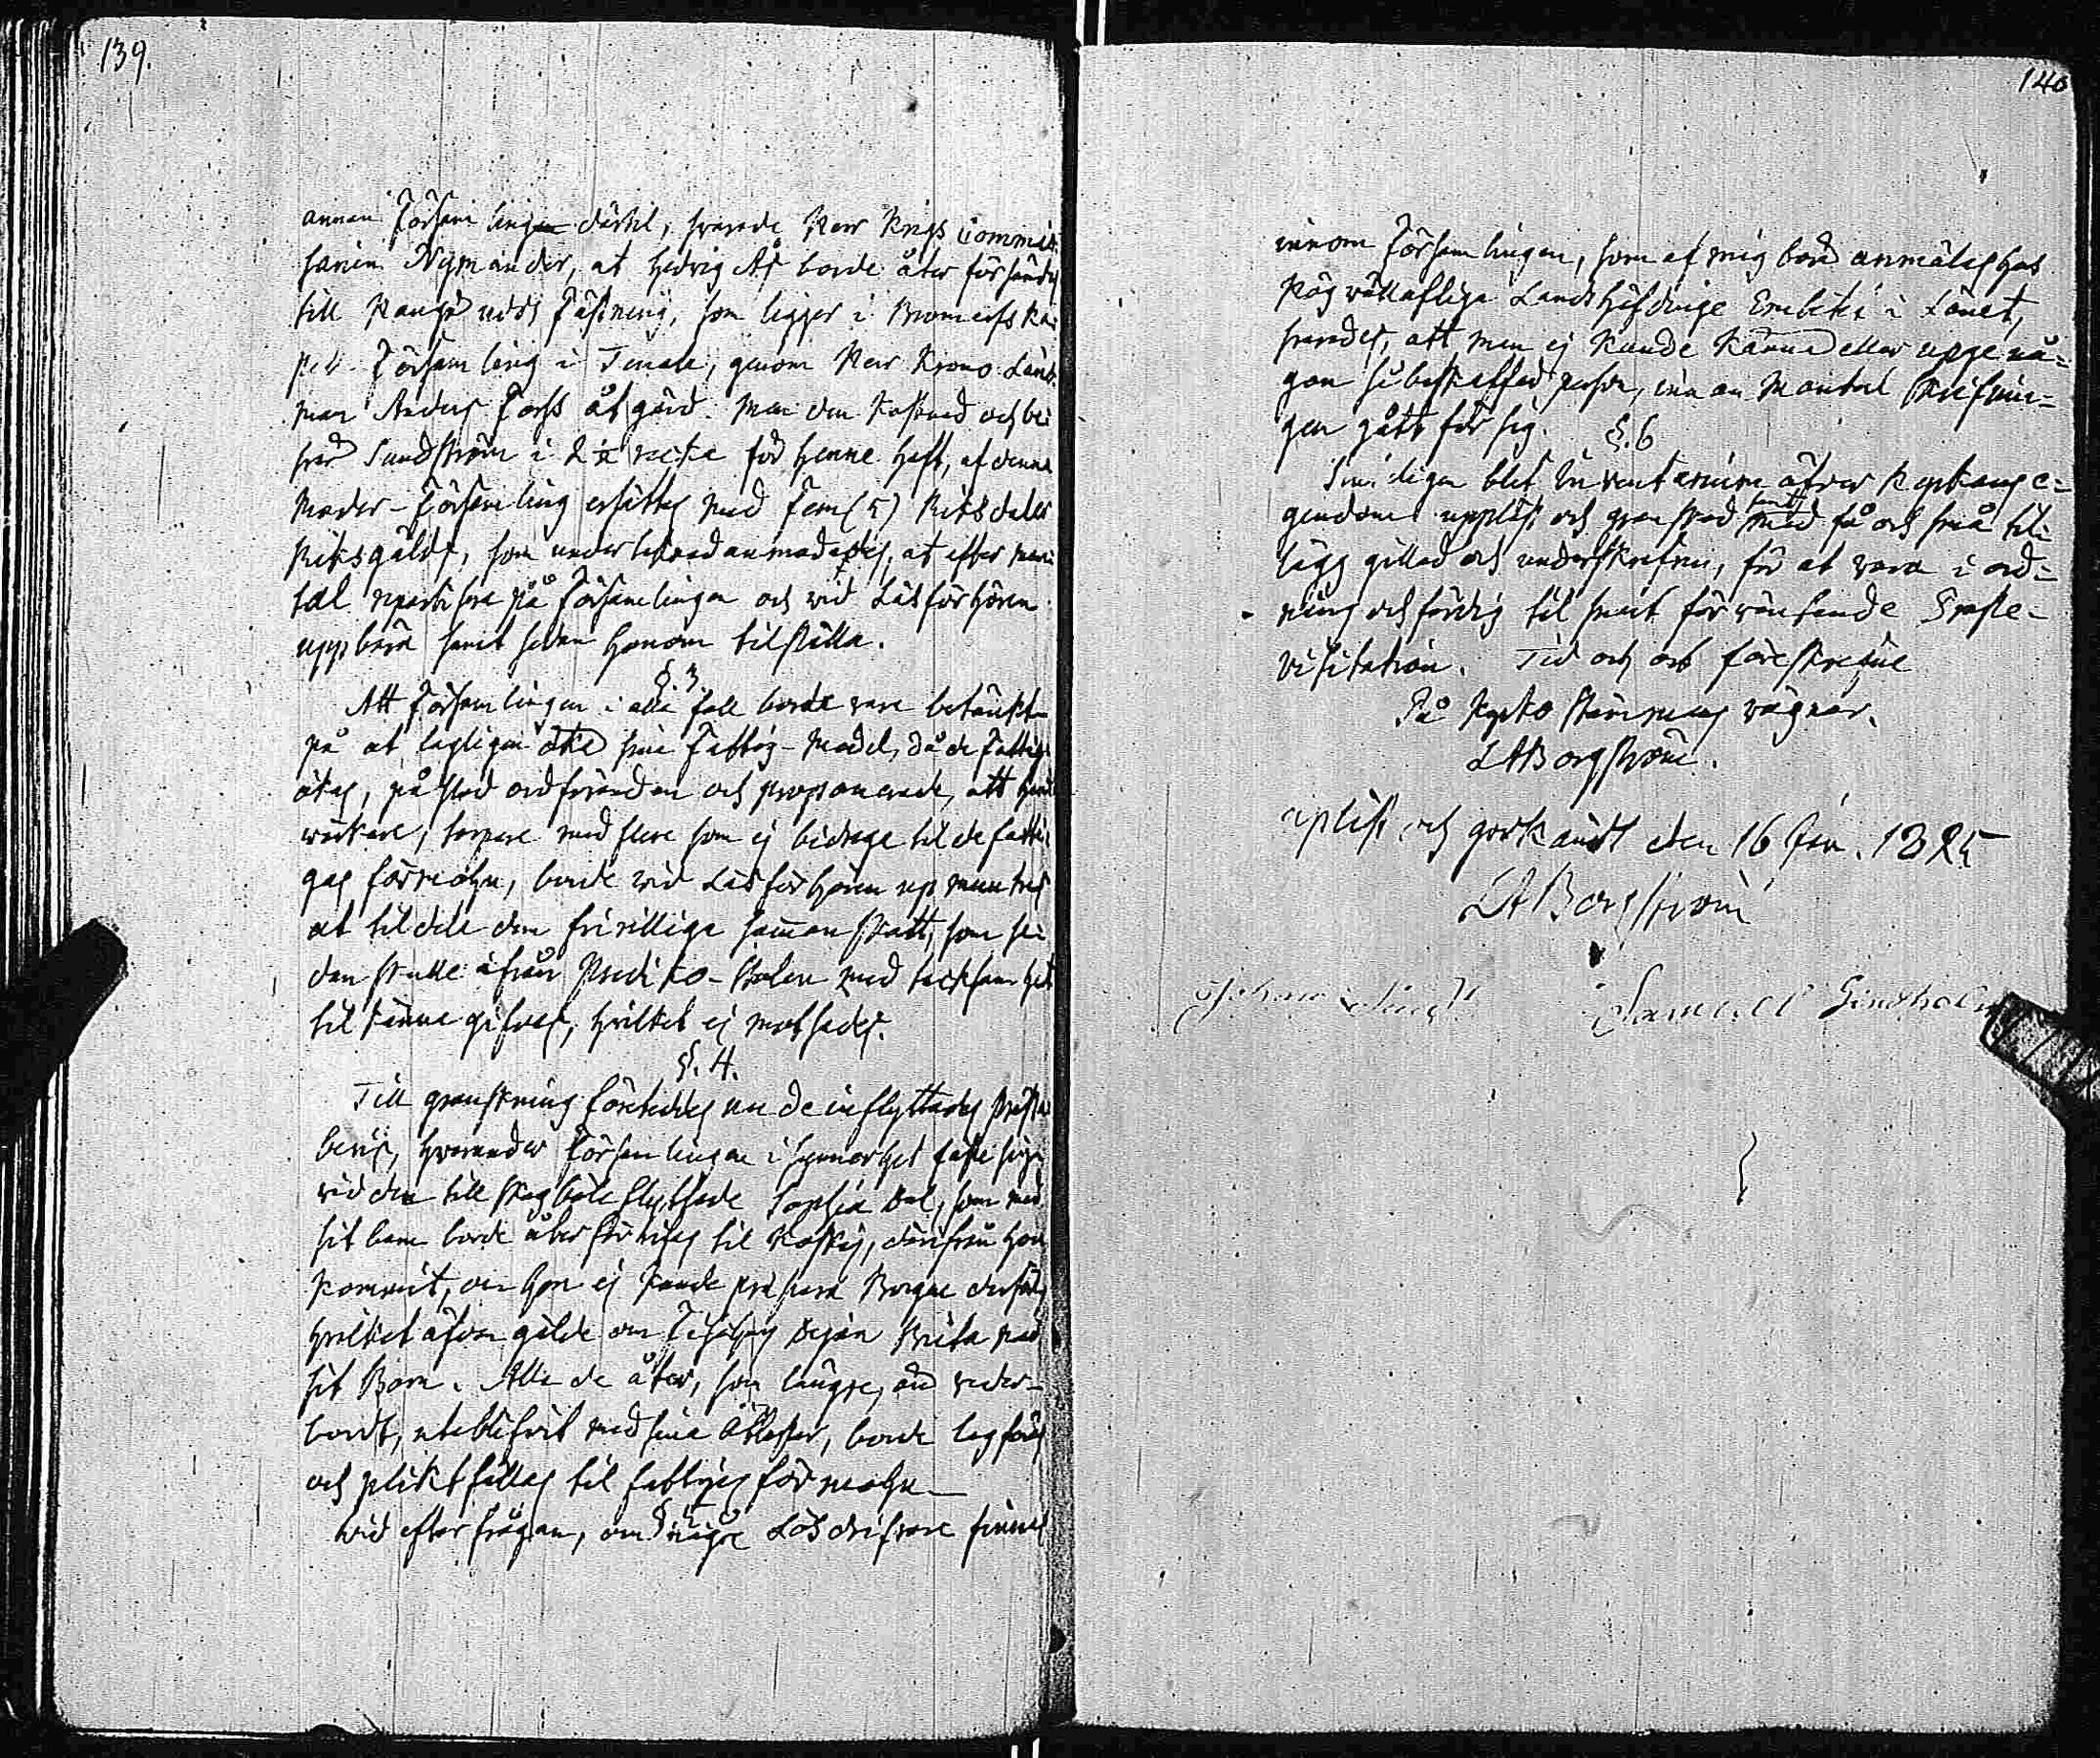 139.
annan Församlingen därtil, svarade Herr Krigs Commis-
sarien Nymander, at Hedvig As borde åter försändas
till Hangö udds Fästning, som ligger i Bromarfs Ka-
pell-Församling i Tenala, genom Herr Krono Läns-
man Anders Forss åtgärd. Men den kostnad och be-
svär Sundström i 2 1/2 vecka för henne haft, af denna
Moder-Församling ersättas med Fem (5) Riksdaler
Riksgälds, som under lefnad anmodades, at efter man-
tal repartisera på Församlingen och vid Läsförhören
uppbära samt sedan honom tilställa.
§. 3.
Att Församlingen i alla fall borde vara betänkt
på at lagligen öka sina Fattig-Medel, då de Fattige
ökas, påstod ordföranden och proponerade, att hand-
wärkare, torpare med flere som ej bidraga til de fatti-
gas förmohn, borde vid Läsförhören upmuntras
at tildela dem frivillige sammanskatt, som se-
dan skulle ifrån Prediko-Stolen med tacksamhet
til känna gifvas, hvilket ej motsades.
§. 4.
Till granskning företeddes nu de inflyttades Präste-
bevis, hvarunder Församlingen i synnerhet fäste sig
vid den till Skogböle flyttade Sophia Dal, som med
sit barn borde återförvisas til Koskis, därifrån hon
kommit, om hon ej kunde præstera Borgen derför,
hvilket äfven gälde om Pigan Brita med
sit Barn. Alla de åter, som längre, än veder-
bordt, uteblifvit med sina Attester, borde lagföras
och pliktfällas til fattiges förmohn.
§. 5
Wid efterfrågan, om några Lösdrifvare finnes
140
innom Församlingen, som af mig bord anmälas hos
Högvällofliga Landshöfdinge Embetet i Länet,
svarades, att man ej kunde känna eller upge nå-
gon så beskaffad person, innan Mantal Skrifnin-
gen gått för sig.
§. 6
Sluteligen blef Inventarium öfver Kyrkans e-
gendom uppläst och granskad samt med få och små til-
lägg gillad och underskrifven, för at vara i ord-
ning och färdig til snart förväntande Proste-
visitation. Tid och ort föreskrefne
På Kyrko Stämmans vägnar.
L A Borgström.
upläst och godkändt den 16 Jan. 1825
L A Borgström
Johan Samuel Lindholm